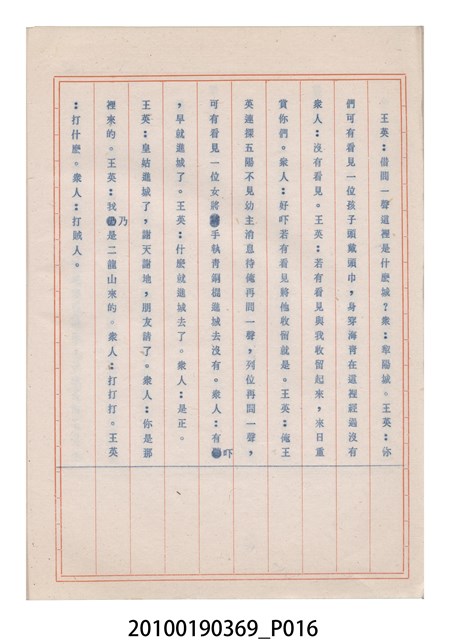 王英：借問一聲這裡是什麼城？衆：犂陽城。王英：你
們可有看見一位孩子頭戴頭巾，身穿海青在這裡經過沒有
衆人：沒有看見。王英：若有看見與我收留起來，來日重
賞你們。衆人：好吓若有看見將他收留就是。王英：俺王
英連探五陽不見幼主消息待俺再問一聲，列位再問一聲，
可有看見一位女將手執青銅棍進城去沒有。衆人：有吓
，早就進城了。王英：什麽就進城去了。衆人：是正。
王英：皇姑進城了，謝天謝地，朋友請了。衆人：你是那
裡來的。王英：我乃是二龍山來的。衆人：打打打。王英
：打什麽。衆人：打賊人。
20100190369_P016